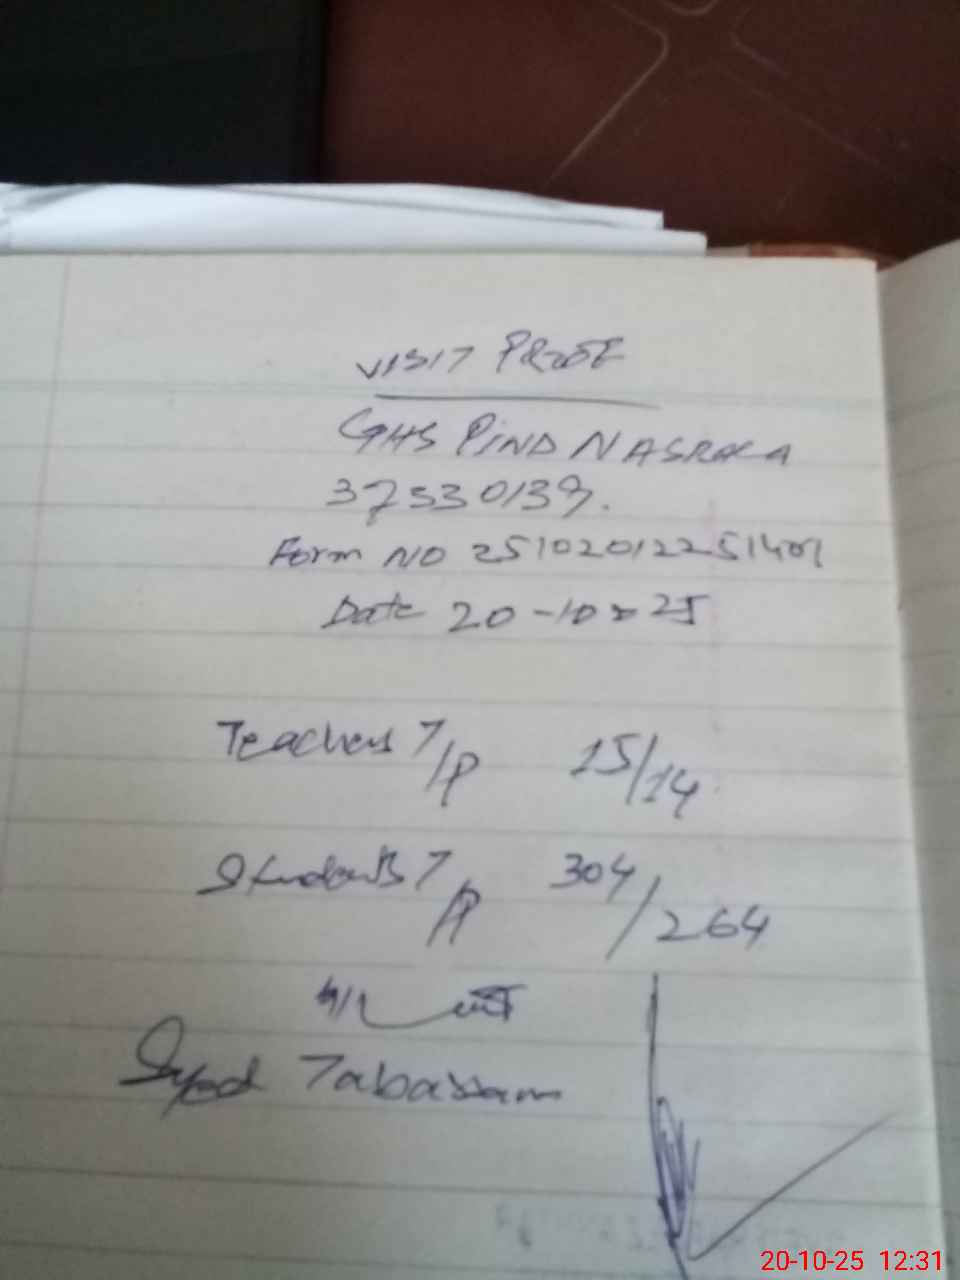 VISIT PROOF
GHS PIND NASRALA
37330139.
Form NO 251020122251401
Date 20-10-25
Teachers T/P 15/14
Students T/P 304/264
Syed Tabassam
20-10-25 12:31